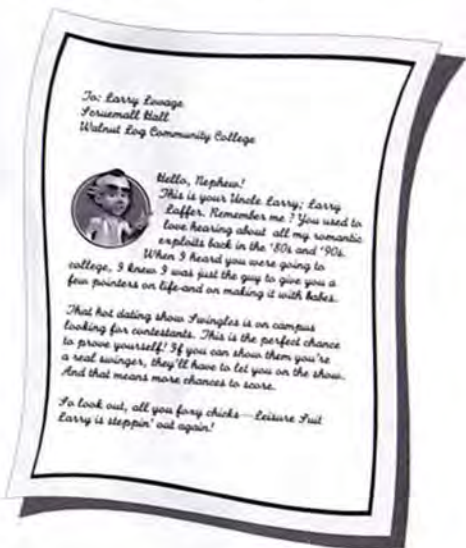 To: Larry Lovage
Scruemall Hall
Walnut Log Community College
Hello, Nephew!
This is your Uncle Larry; Larry
Laffer. Remember me? You used to
love hearing about all my romantic
exploits back in the '80s and '90s.
When I heard you were going to
college, I knew I was just the guy to give you a
few pointers on life-and on making it with babes.
That hot dating show Swingles is on campus
looking for contestants. This is the perfect chance
to prove yourself! If you can show them you're
a real swinger, they'll have to let you on the show.
And that means more chances to score.
So look out, all you foxy chicks—Leisure Suit
Larry is steppin' out again!